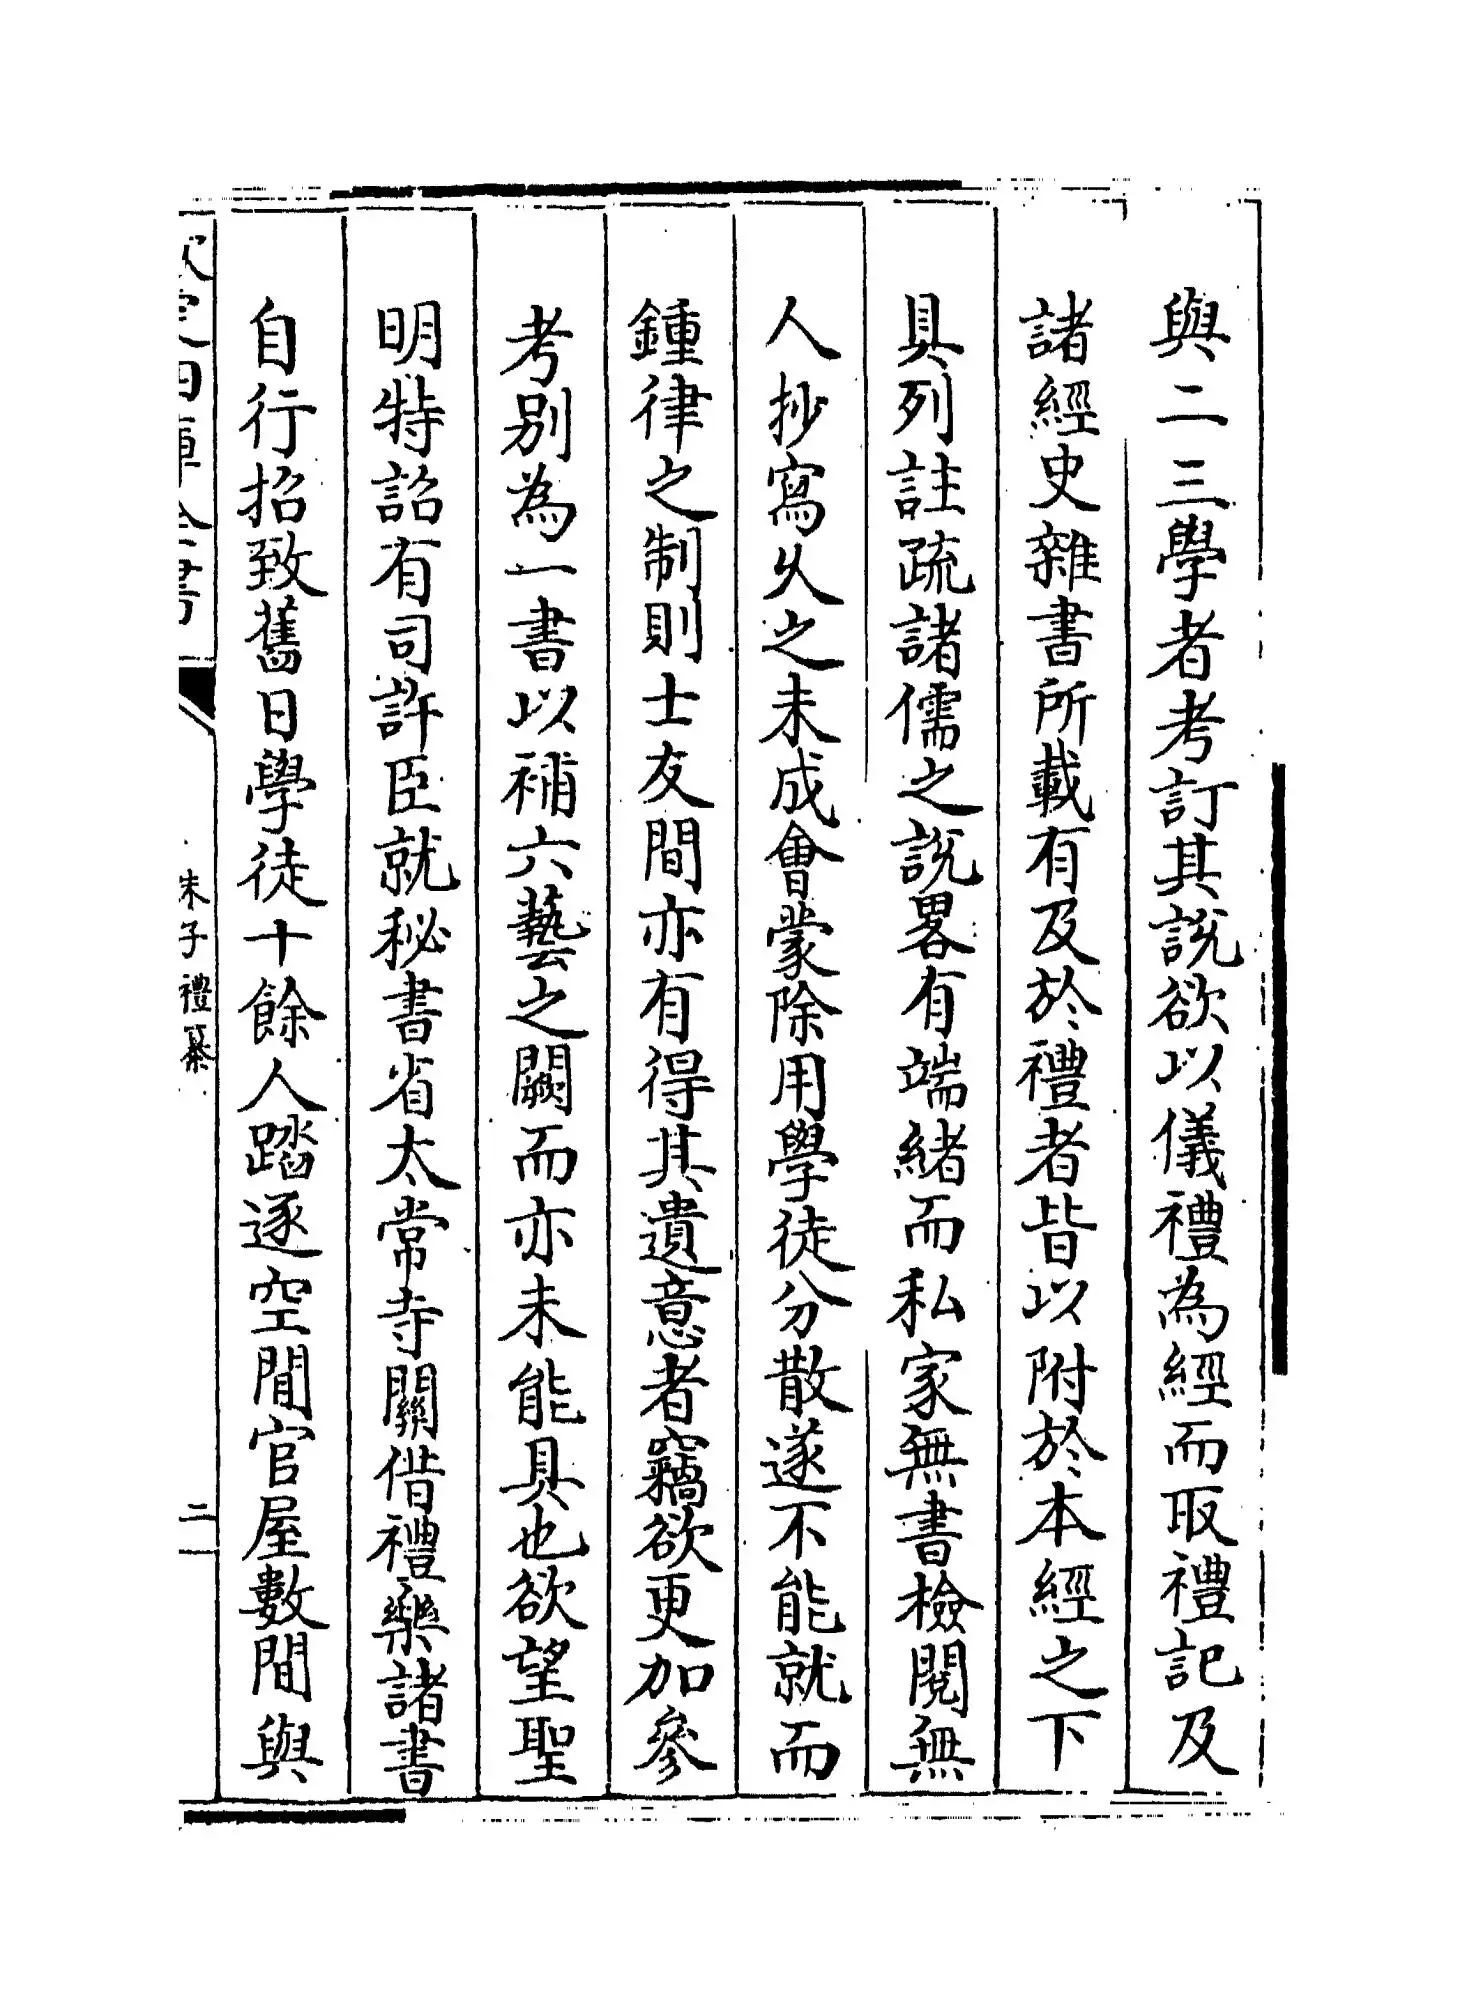 與二三學者考訂其説欲以儀禮為經而取禮記及
諸經史雜書所載有及於禮者皆以附於本經之下
具列註疏諸儒之説畧有端緒而私家無書檢閱無
人抄寫乆之未成會蒙除用學徒分散遂不能就而
鍾律之制則士友間亦有得其遺意者竊欲更加參
考别為一書以補六藝之闕而亦未能具也欲望聖
明特詔有司許臣就秘書省太常寺關借禮樂諸書
自行招致舊日學徒十餘人踏逐空閒官屋數間與
欽定四庫全書
朱子禮纂
二